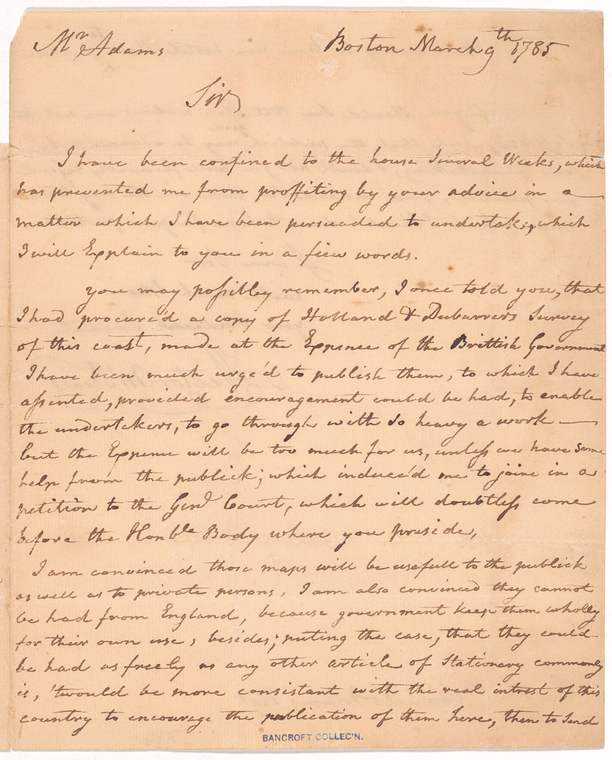 Mr Adams
Boston March 9th 1785
Sir
I have been confined to the house Several Weeks, which
has prevented me from proffiting by your advice in a
matter which I have been persuaded to undertake, which
I will Explain to you in a few words.
you may possibley remember, I once told you, that
I had procured a copy of Holland & Dubarrers Survey
of this coast, made at the Expence of the Brittish Government
I have been much urge'd to publish them, to which I have
assented, provided encouragement could be had, to enable
the undertakers, to go through with so heavy a work —
but the Expence will be too much for us, unless we have some
help from the publick; which induced me to joine in a
petition to the Genl Court, which will doubtless come
before the Honble Body where you preside,
I am convinced those maps will be usefull to the publick
as well as to private persons, I am also convinced they cannot
be had from England, because government keep them wholly
for their own use, besides; puting the case, that they could
be had as freely as any other article of Stationery commonly
is, 'twould be more consistant with the real intrest of this
country to encourage the publication of them here, then to Send
BANCROFT COLLEC'N.